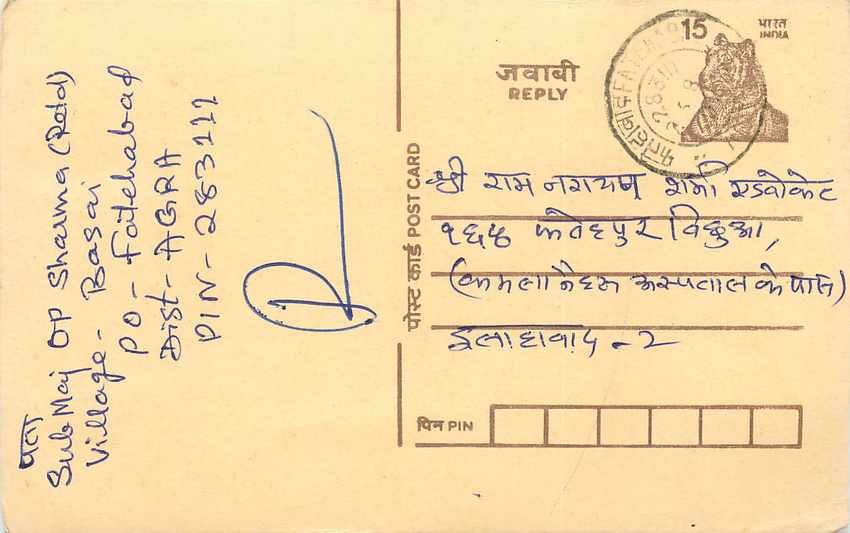 पता
Sub Maj OP Sharma (Retd)
Village - Basai
PO - Fatehabad
Dist - AGRA
PIN - 283111
पोस्ट कार्ड POST CARD
जवाबी
REPLY
15
भारत
INDIA
फतेहाबाद FATEHABAD
283111
श्री राम नरायण शर्मा एडवोकेट
१६५ फतेहपुर विछुआ,
(कमला नेहरू अस्पताल के पास)
इलाहाबाद - 2
पिन PIN